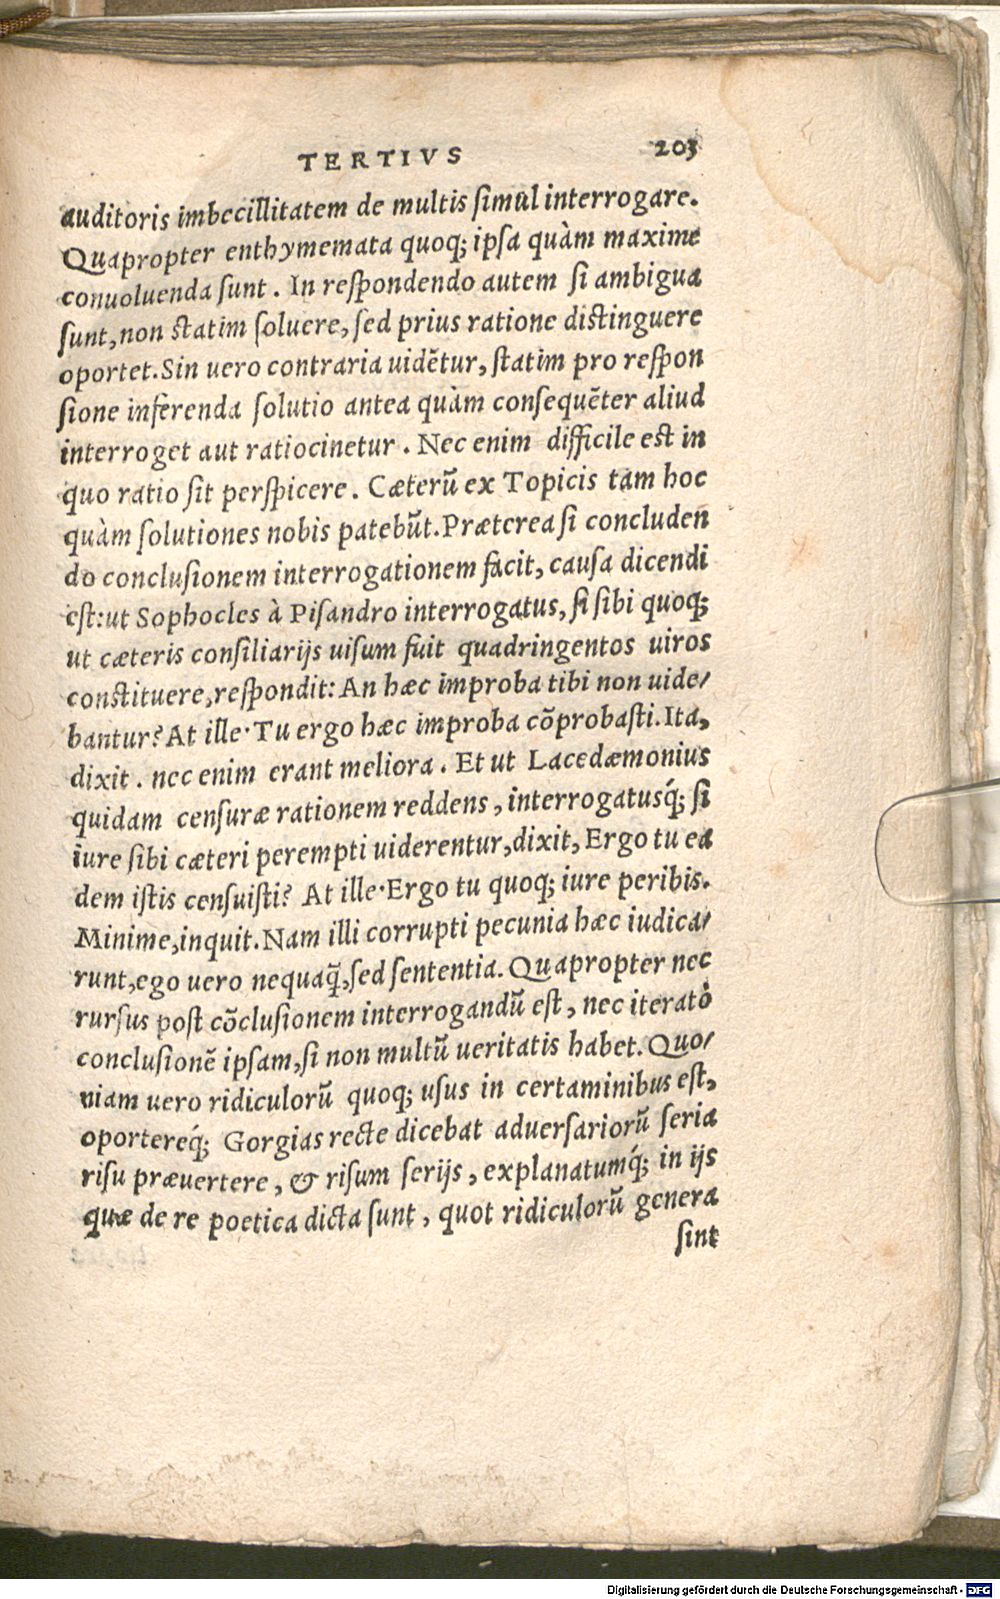 TERTIVS 203
auditoris imbecillitatem de multis simul interrogare.
Quapropter enthymemata quoq; ipsa quàm maxime
conuoluenda sunt. In respondendo autem si ambigua
sunt, non statim soluere, sed prius ratione distinguere
oportet. Sin uero contraria uidētur, statim pro respon
sione inferenda solutio antea quàm consequēter aliud
interroget aut ratiocinetur. Nec enim difficile est in
quo ratio sit perspicere. Cæterū ex Topicis tam hoc
quàm solutiones nobis patebūt. Præterea si concluden
do conclusionem interrogationem facit, causa dicendi
est: ut Sophocles à Pisandro interrogatus, si sibi quoq;
ut cæteris consiliarijs uisum fuit quadringentos uiros
constituere, respondit: An hæc improba tibi non uide/
bantur? At ille· Tu ergo hæc improba cōprobasti. Ita,
dixit. nec enim erant meliora. Et ut Lacedæmonius
quidam censuræ rationem reddens, interrogatusq́; si
iure sibi cæteri perempti uiderentur, dixit, Ergo tu ea
dem istis censuisti? At ille· Ergo tu quoq; iure peribis.
Minime, inquit. Nam illi corrupti pecunia hæc iudica/
runt, ego uero nequaq̃, sed sententia. Quapropter nec
rursus post cōclusionem interrogandū est, nec iteratò
conclusionē ipsam, si non multū ueritatis habet. Quo/
niam uero ridiculorū quoq; usus in certaminibus est,
oportereq́; Gorgias recte dicebat aduersariorū seria
risu præuertere, & risum serijs, explanatumq́; in ijs
quæ de re poetica dicta sunt, quot ridiculorū genera
sint
Digitalisierung gefördert durch die Deutsche Forschungsgemeinschaft - DFG